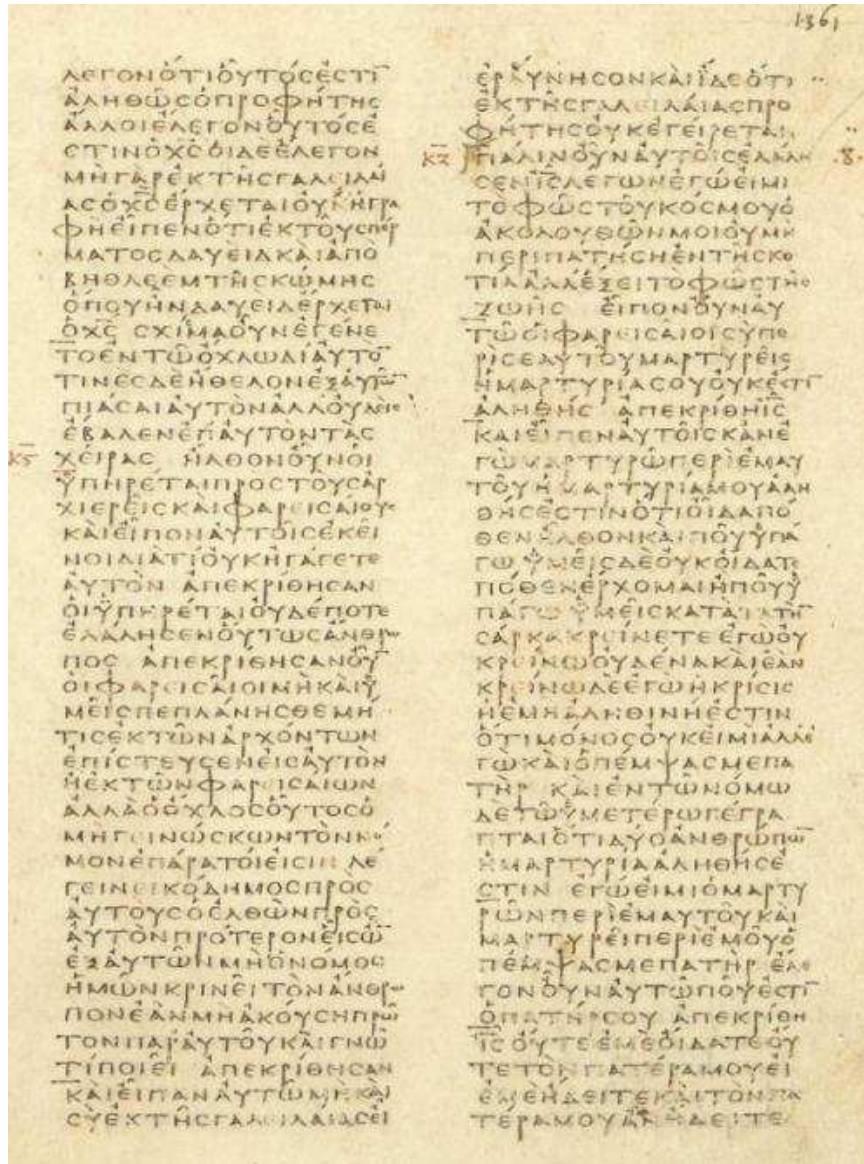 1361
ΛΕΓΟΝΟΤΙΟΥΤΟϹΕϹΤΙ̅
ΑΛΗΘΩϹΟΠΡΟΦΗΤΗϹ
ΑΛΛΟΙΕΛΕΓΟΝΟΥΤΟϹΕ
ϹΤΙΝΟΧ̅Ϲ̅ΟΙΔΕΕΛΕΓΟΝ
ΜΗΓΑΡΕΚΤΗϹΓΑΛΕΙΛΑΙ
ΑϹΟΧ̅Ϲ̅ΕΡΧΕΤΑΙΟΥΧΗΓΡΑ
ΦΗΕΙΠΕΝΟΤΙΕΚΤΟΥϹΠΕΡ
ΜΑΤΟϹΔΑΥΕΙΔΚΑΙΑΠΟ
ΒΗΘΛΕΕΜΤΗϹΚΩΜΗϹ
ΟΠΟΥΗΝΔΑΥΕΙΔΕΡΧΕΤΑΙ
ΟΧ̅Ϲ̅ ϹΧΙϹΜΑΟΥΝΕΓΕΝΕ
ΤΟΕΝΤΩΟΧΛΩΔΙΑΥΤΟ̅
ΤΙΝΕϹΔΕΗΘΕΛΟΝΕΞΑΥΤΩ̅
ΠΙΑϹΑΙΑΥΤΟΝΑΛΛΟΥΔΕΙϹ
ΕΒΑΛΕΝΕΠΑΥΤΟΝΤΑϹ
Κ̅Ϛ̅ ΧΕΙΡΑϹ ΗΛΘΟΝΟΥΝΟΙ
ΥΠΗΡΕΤΑΙΠΡΟϹΤΟΥϹΑΡ
ΧΙΕΡΕΙϹΚΑΙΦΑΡΕΙϹΑΙΟΥϹ
ΚΑΙΕΙΠΟΝΑΥΤΟΙϹΕΚΕΙ
ΝΟΙΔΙΑΤΙΟΥΚΗΓΑΓΕΤΕ
ΑΥΤΟΝ ΑΠΕΚΡΙΘΗϹΑΝ
ΟΙΥΠΗΡΕΤΑΙΟΥΔΕΠΟΤΕ
ΕΛΑΛΗϹΕΝΟΥΤΩϹΑΝΘΡΩ
ΠΟϹ ΑΠΕΚΡΙΘΗϹΑΝΟΥ̅
ΟΙΦΑΡΕΙϹΑΙΟΙΜΗΚΑΙΥ
ΜΕΙϹΠΕΠΛΑΝΗϹΘΕΜΗ
ΤΙϹΕΚΤΩΝΑΡΧΟΝΤΩΝ
ΕΠΙϹΤΕΥϹΕΝΕΙϹΑΥΤΟΝ
ΗΕΚΤΩΝΦΑΡΕΙϹΑΙΩΝ
ΑΛΛΑΟΟΧΛΟϹΟΥΤΟϹΟ
ΜΗΓΕΙΝΩϹΚΩΝΤΟΝΝΟ
ΜΟΝΕΠΑΡΑΤΟΙΕΙϹΙΝ ΛΕ
ΓΕΙΝΕΙΚΟΔΗΜΟϹΠΡΟϹ
ΑΥΤΟΥϹΟΕΛΘΩΝΠΡΟϹ
ΑΥΤΟΝΠΡΟΤΕΡΟΝΕΙϹΩ̅
ΕΞΑΥΤΩΝΜΗΟΝΟΜΟϹ
ΗΜΩΝΚΡΙΝΕΙΤΟΝΑΝΘΡΩ
ΠΟΝΕΑΝΜΗΑΚΟΥϹΗΠΡΩ̅
ΤΟΝΠΑΡΑΥΤΟΥΚΑΙΓΝΩ
ΤΙΠΟΙΕΙ ΑΠΕΚΡΙΘΗϹΑΝ
ΚΑΙΕΙΠΑΝΑΥΤΩΜΗΚΑΙ
ϹΥΕΚΤΗϹΓΑΛΕΙΛΑΙΑϹΕΙ
ΕΡΑΥΝΗϹΟΝΚΑΙΙΔΕΟΤΙ
ΕΚΤΗϹΓΑΛΕΙΛΑΙΑϹΠΡΟ
ΦΗΤΗϹΟΥΚΕΓΕΙΡΕΤΑΙ
Κ̅Ζ̅ ΠΑΛΙΝΟΥΝΑΥΤΟΙϹΕΛΑΛΗ ·8·
ϹΕΝΙ̅Ϲ̅ΛΕΓΩΝΕΓΩΕΙΜΙ
ΤΟΦΩϹΤΟΥΚΟϹΜΟΥΟ
ΑΚΟΛΟΥΘΩΝΜΟΙΟΥΜΗ
ΠΕΡΙΠΑΤΗϹΗΕΝΤΗϹΚΟ
ΤΙΑΑΛΛΕΞΕΙΤΟΦΩϹΤΗϹ
ΖΩΗϹ ΕΙΠΟΝΟΥΝΑΥ
ΤΩΟΙΦΑΡΕΙϹΑΙΟΙϹΥΠΕ
ΡΙϹΕΑΥΤΟΥΜΑΡΤΥΡΕΙϹ
ΗΜΑΡΤΥΡΙΑϹΟΥΟΥΚΕϹΤΙ̅
ΑΛΗΘΗϹ ΑΠΕΚΡΙΘΗΙ̅Ϲ̅
ΚΑΙΕΙΠΕΝΑΥΤΟΙϹΚΑΝΕ
ΓΩΜΑΡΤΥΡΩΠΕΡΙΕΜΑΥ
ΤΟΥΗΜΑΡΤΥΡΙΑΜΟΥΑΛΗ
ΘΗϹΕϹΤΙΝΟΤΙΟΙΔΑΠΟ
ΘΕΝΗΛΘΟΝΚΑΙΠΟΥΥΠΑ
ΓΩ ΥΜΕΙϹΔΕΟΥΚΟΙΔΑΤΕ
ΠΟΘΕΝΕΡΧΟΜΑΙΗΠΟΥΥ
ΠΑΓΩ ΥΜΕΙϹΚΑΤΑΤΗ̅
ϹΑΡΚΑΚΡΕΙΝΕΤΕΕΓΩΟΥ
ΚΡΕΙΝΩΟΥΔΕΝΑΚΑΙΕΑΝ
ΚΡΕΙΝΩΔΕΕΓΩΗΚΡΙϹΙϹ
ΗΕΜΗΑΛΗΘΙΝΗΕϹΤΙΝ
ΟΤΙΜΟΝΟϹΟΥΚΕΙΜΙΑΛΛΕ
ΓΩΚΑΙΟΠΕΜΨΑϹΜΕΠΑ
ΤΗΡ ΚΑΙΕΝΤΩΝΟΜΩ
ΔΕΤΩΥΜΕΤΕΡΩΓΕΓΡΑ
ΠΤΑΙΟΤΙΔΥΟΑΝΘΡΩΠΩ̅
ΗΜΑΡΤΥΡΙΑΑΛΗΘΗϹΕ
ϹΤΙΝ ΕΓΩΕΙΜΙΟΜΑΡΤΥ
ΡΩΝΠΕΡΙΕΜΑΥΤΟΥΚΑΙ
ΜΑΡΤΥΡΕΙΠΕΡΙΕΜΟΥΟ
ΠΕΜΨΑϹΜΕΠΑΤΗΡ ΕΛΕ
ΓΟΝΟΥΝΑΥΤΩΠΟΥΕϹΤΙ̅
ΟΠΑΤΗΡϹΟΥ ΑΠΕΚΡΙΘΗ
Ι̅Ϲ̅ ΟΥΤΕΕΜΕΟΙΔΑΤΕΟΥ
ΤΕΤΟΝΠΑΤΕΡΑΜΟΥΕΙ
ΕΜΕΗΔΕΙΤΕΚΑΙΤΟΝΠΑ
ΤΕΡΑΜΟΥΑΝΗΔΕΙΤΕ